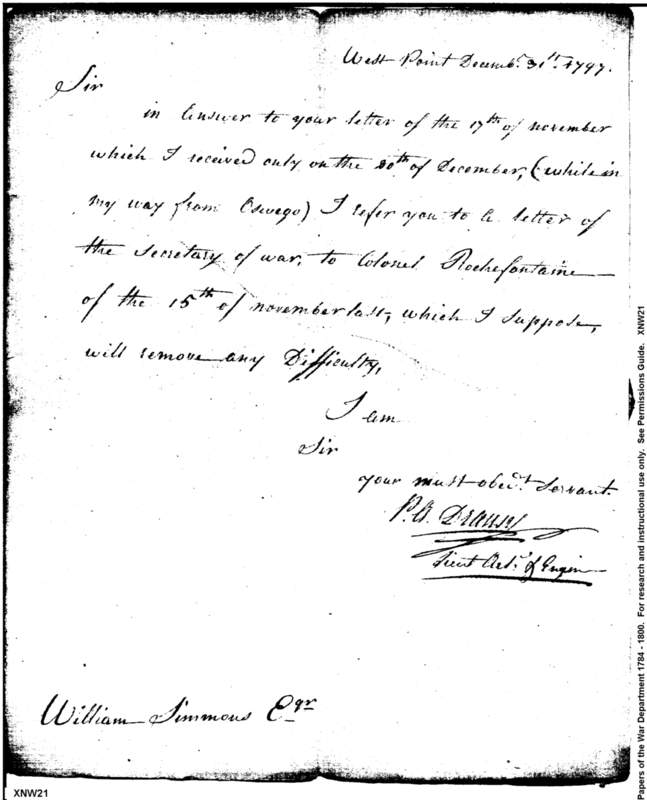 West Point Decemb.r 31st. 1797.
Sir
in Answer to your letter of the 17th of november
which I received only on the 20th of December, (while in
my way from Oswego) I refer you to a letter of
the Secretary of war, to Colonel Rochefontaine
of the 15th of november last, which I suppose,
will remove any Difficulty,
I am
Sir
your must obed.t Servant.
P.A. Dransy
Lieut Art.y & Engin
William Simmons Esqr
XNW21
Papers of the War Department 1784 - 1800. For research and instructional use only. See Permissions Guide. XNW21